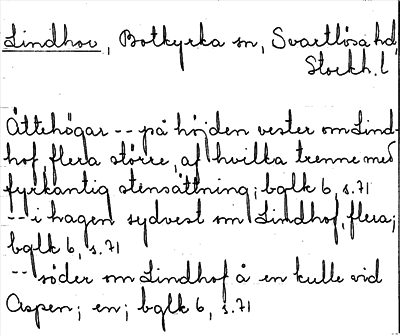 Lindhov, Botkyrka sn, Svartlösa hd,
Stockh. l
Ättehögar -- på höjden vester om Lind-
hof, flera större, af hvilka trenne med
fyrkantig stensättning; bglk 6, s. 71
-- i hagen sydvest om Lindhof, flera;
bglk 6, s. 71
-- söder om Lindhof å en kulle vid
Aspen; en; bglk 6, s. 71